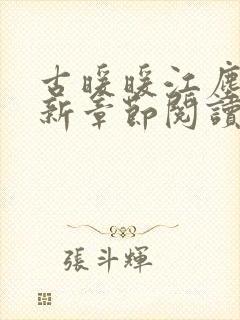 古暖暖江塵
新章節閱讀
張斗輝